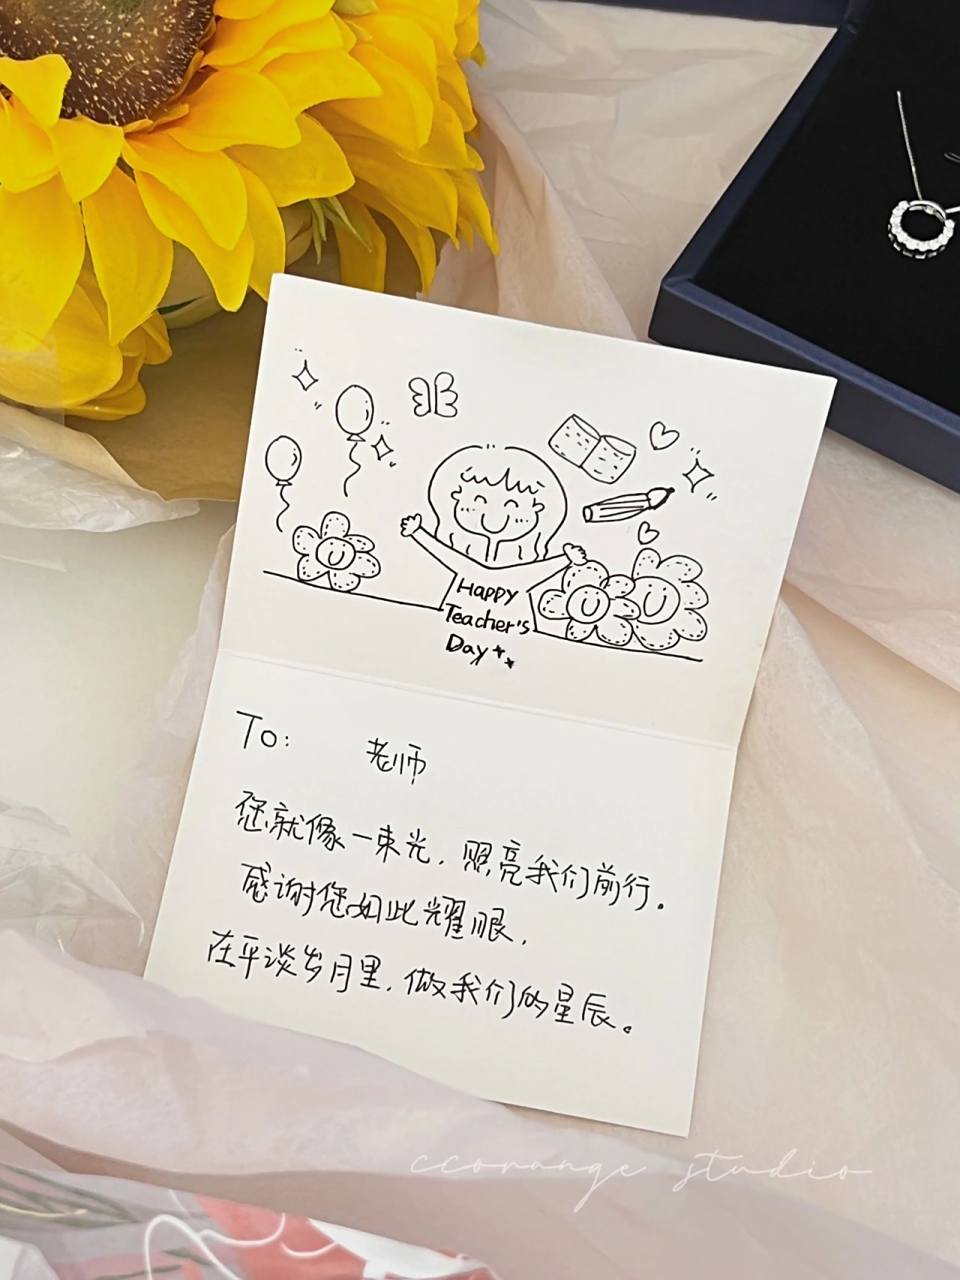 Happy
Teacher's
Day
To: 老师
您就像一束光，照亮我们前行。
感谢您如此耀眼，
在平淡岁月里，做我们的星辰。
ccorange studio